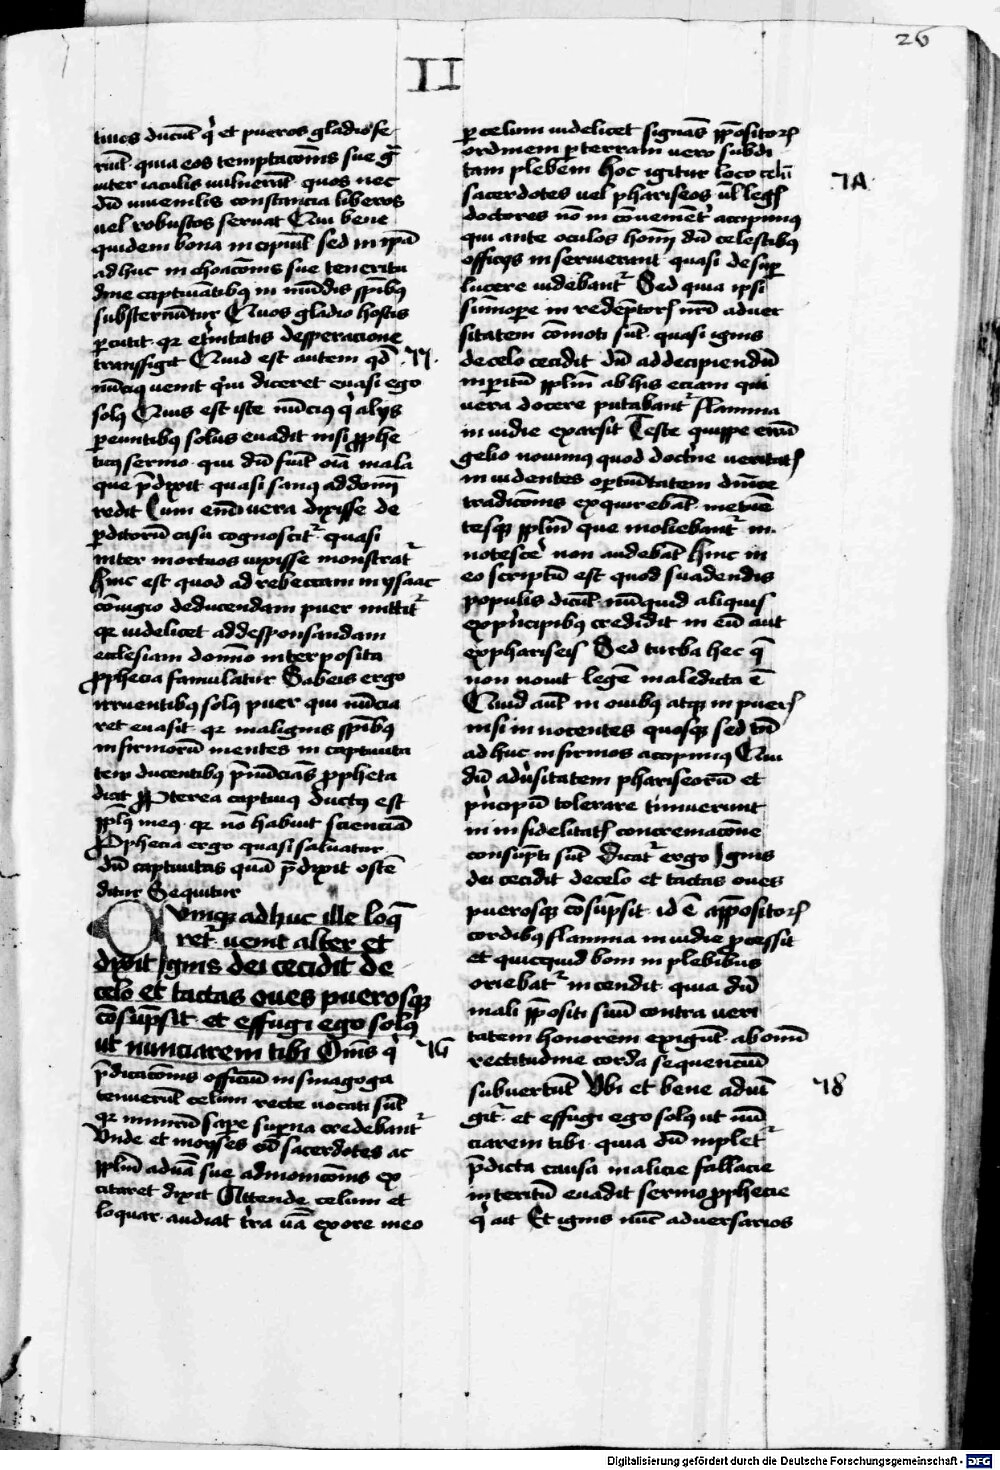 26
II
tiuos ducūt q̇ et pueros gladio fe
riūt quia eos temptacōnis sue gͣ
uiter iaculis vulnerāt quos nec
dū iuuenilis constancia liberos
uel robustos seruat Qui bene
quidem bona incipiūt sed in ipā
adhuc inchoacōnis sue teneritu
dine captiuātibꝰ in mūdis spībꝰ
substernūtur Quos gladio hostis
ꝑcutit qꝛ et̓nitatis desperacione
transfigit Quid est autem qd̄
nūciꝰ venit q̇ diceret euasi ego
solꝰ Quis est iste nūciꝰ q̇ alijs
ꝑeuntibꝰ solus euadit nisi ꝓphe
ticꝰ sermo qui dū fiūt oīa mala
que p̄dixit quasi sanꝰ ad domī
redit Cum enī vera dixisse de
ꝑditorū casu cognoscit᷑ quasi
inter mortuos vixisse monstrat᷑
hinc est quod ad rebeccam in ysaac
cōiugio deducendam puer mittit᷑
qꝛ videlicet addesponsandam
ecclesiam domīo interposita
ꝓphecia famulatur Sabeis ergo
irruentibꝰ solꝰ puer qui nūcia
ret euasit qꝛ malignis spībꝰ
infirmorū mentes in captiuita
tem ducentibꝰ p̄nūcians ꝓpheta
dicit ꝓpterea captiuꝰ ductꝰ est
pplꝰ meꝰ qꝛ nō habuit scienciā
ꝓphecia ergo quasi saluatur
dū captiuitas quā p̄dixit ostē
ditur Sequitur
Cvmqꝫ adhuc ille loq̄
ret᷑ venit alter et
dixit Ignis dei cecidit de
celo et tactas oues puerosqꝫ
cōsūpsit et effugi ego solꝰ
ut nunciarem tibi Om̄s q̇
p̄dicacōnis officiū in sinagoga
tenuerūt celum recte vocati sūt
qꝛ nimirū sape suꝑna credebant᷑
Vnde et moyses cū sacerdotes ac
pplm̄ ad viā sue admonicōnis ex
citaret dixit Attende celum et
loquar audiat t̓ra v̄ba ex ore meo
ꝑ celum videlicet signās ꝓpositorꝝ
ordinem ꝑ terram vero subdi
tam plebem hoc igitur loco celū
sacerdotes uel phariseos ul̄ legꝭ
doctores nō inconueniēt᷑ accipimꝰ
qui ante oculos homī dū celestibꝰ
officijs inseruerant quasi desuꝑ
lucere videbant᷑ Sed quia ipsi
sūmoꝑe in redēptorꝭ nr̄i aduer
sitatem cōmoti sūt quasi ignis
de celo cecidit dū ad decipiendū
imꝑitū pplm̄ ab his eciam qui
vera docere putabant᷑ flamma
inuidie exarsit Teste quippe euā
gelio nouimꝰ quod doctrine veritatꝭ
inuidentes oportūitatem dn̄ice
tradicōnis exquirebāt metuē
tesqꝫ pplm̄ que moliebant᷑ in
notesce̓ non audebāt hinc in
eo scriptū est quod suadendis
populis dicūt nūquid aliquis
ex p̓ncipibꝰ credidit in eū aut
ex phariseis Sed turba hec q̄
non nouit legē maledicta ē
Quid aūt in ouibꝰ atqꝫ in puerꝭ
nisi innocentes quosqꝫ sed tn̄
adhuc infirmos accipimꝰ Qui
dū adu̓sitatem phariseorū et
p̓ncipū tolerare timuerunt
in infidelitatꝭ concremacōne
consūpti sūt Dicat᷑ ergo Ignis
dei cecidit de celo et tactas oues
puerosqꝫ cōsūpsit id ē a ꝓpositorꝝ
cordibꝰ flamma inuidie ꝓcessit
et quicquid boni in plebibus
oriebat᷑ incendit quia dū
mali ꝓpositi suū contra veri
tatem honorem exigūt ab omī
rectitudine corda sequenciū
subuertūt Vbi et bene adiūgit᷑
et effugi ego solꝰ ut nū
ciarem tibi quia dū inplet᷑
p̄dicta causa malicie fallacie
interitū euadit sermo ꝓphecie
q̇ ait Et ignis nūc adversarios
Digitalisierung gefördert durch die Deutsche Forschungsgemeinschaft - DFG